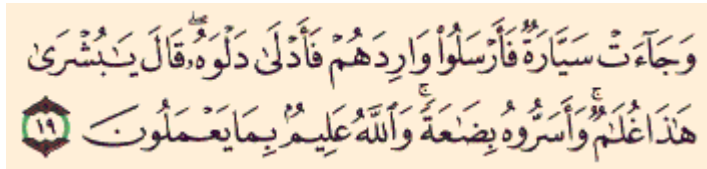 وَجَآءَتْ سَيَّارَةٌ فَأَرْسَلُوا۟ وَارِدَهُمْ فَأَدْلَىٰ دَلْوَهُۥۖ قَالَ يَـٰبُشْرَىٰ
هَـٰذَا غُلَـٰمٌۚ وَأَسَرُّوهُ بِضَـٰعَةًۚ وَٱللَّهُ عَلِيمٌۢ بِمَا يَعْمَلُونَ ١٩